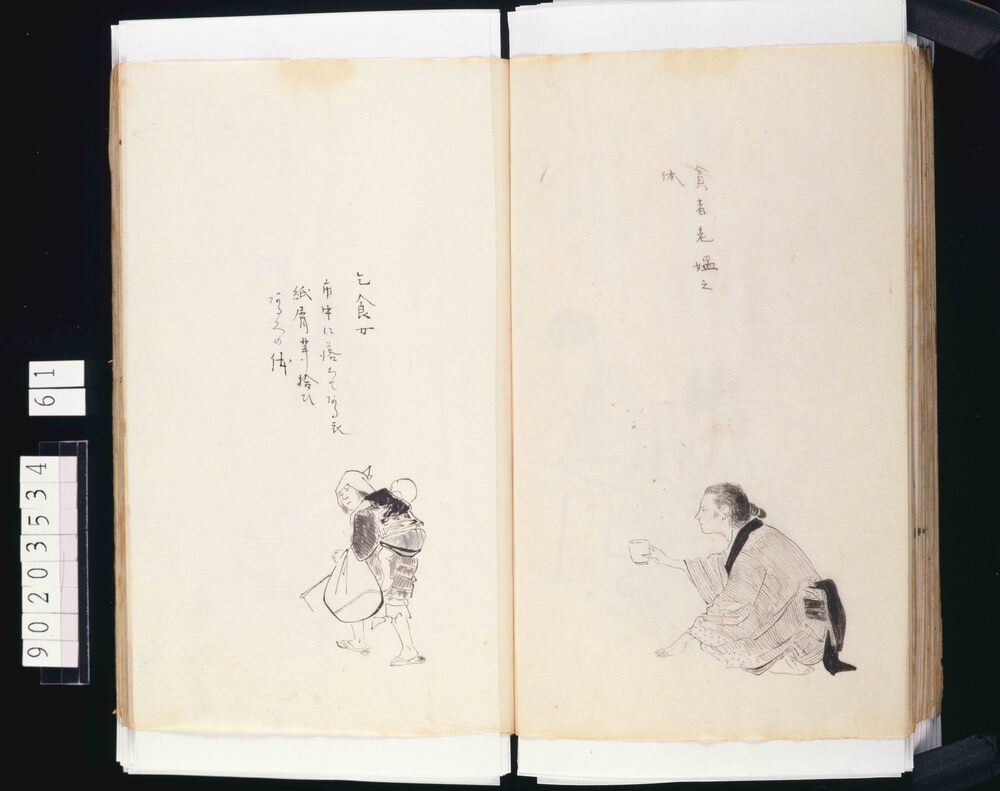 貧者老媼之
体
乞食女
市中に落ちてある衣
紙屑等拾ひ
あるくの体
61
90203534